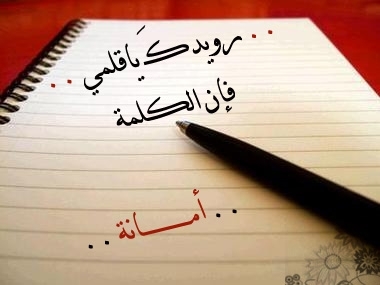 .. رويدك يا قلمي ..
فإن الكلمة
.. أمانة ..